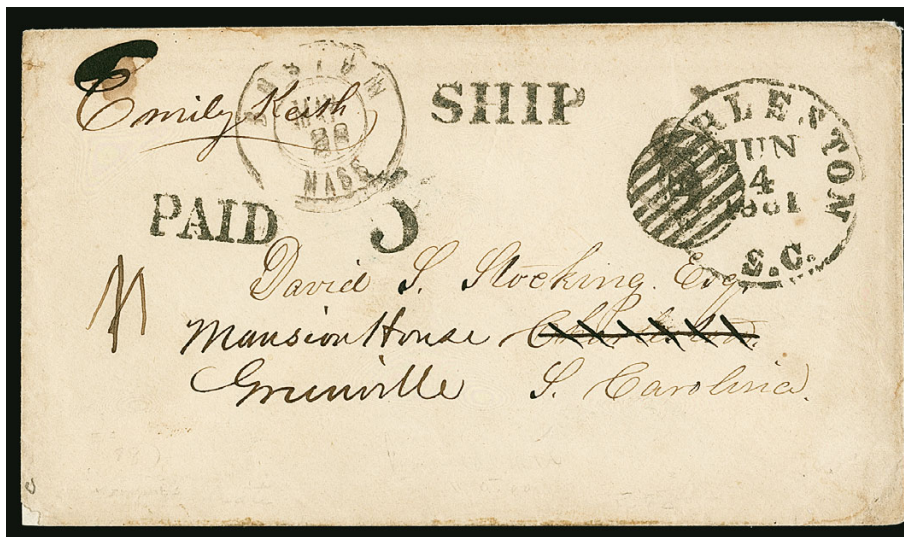 Emily Keith
BOSTON
28
MASS
SHIP
CHARLESTON
JUN
4
1861
S.C.
PAID
5
David S. Stocking. Esq.
Mansion House Charleston.
Greenville S. Carolina.